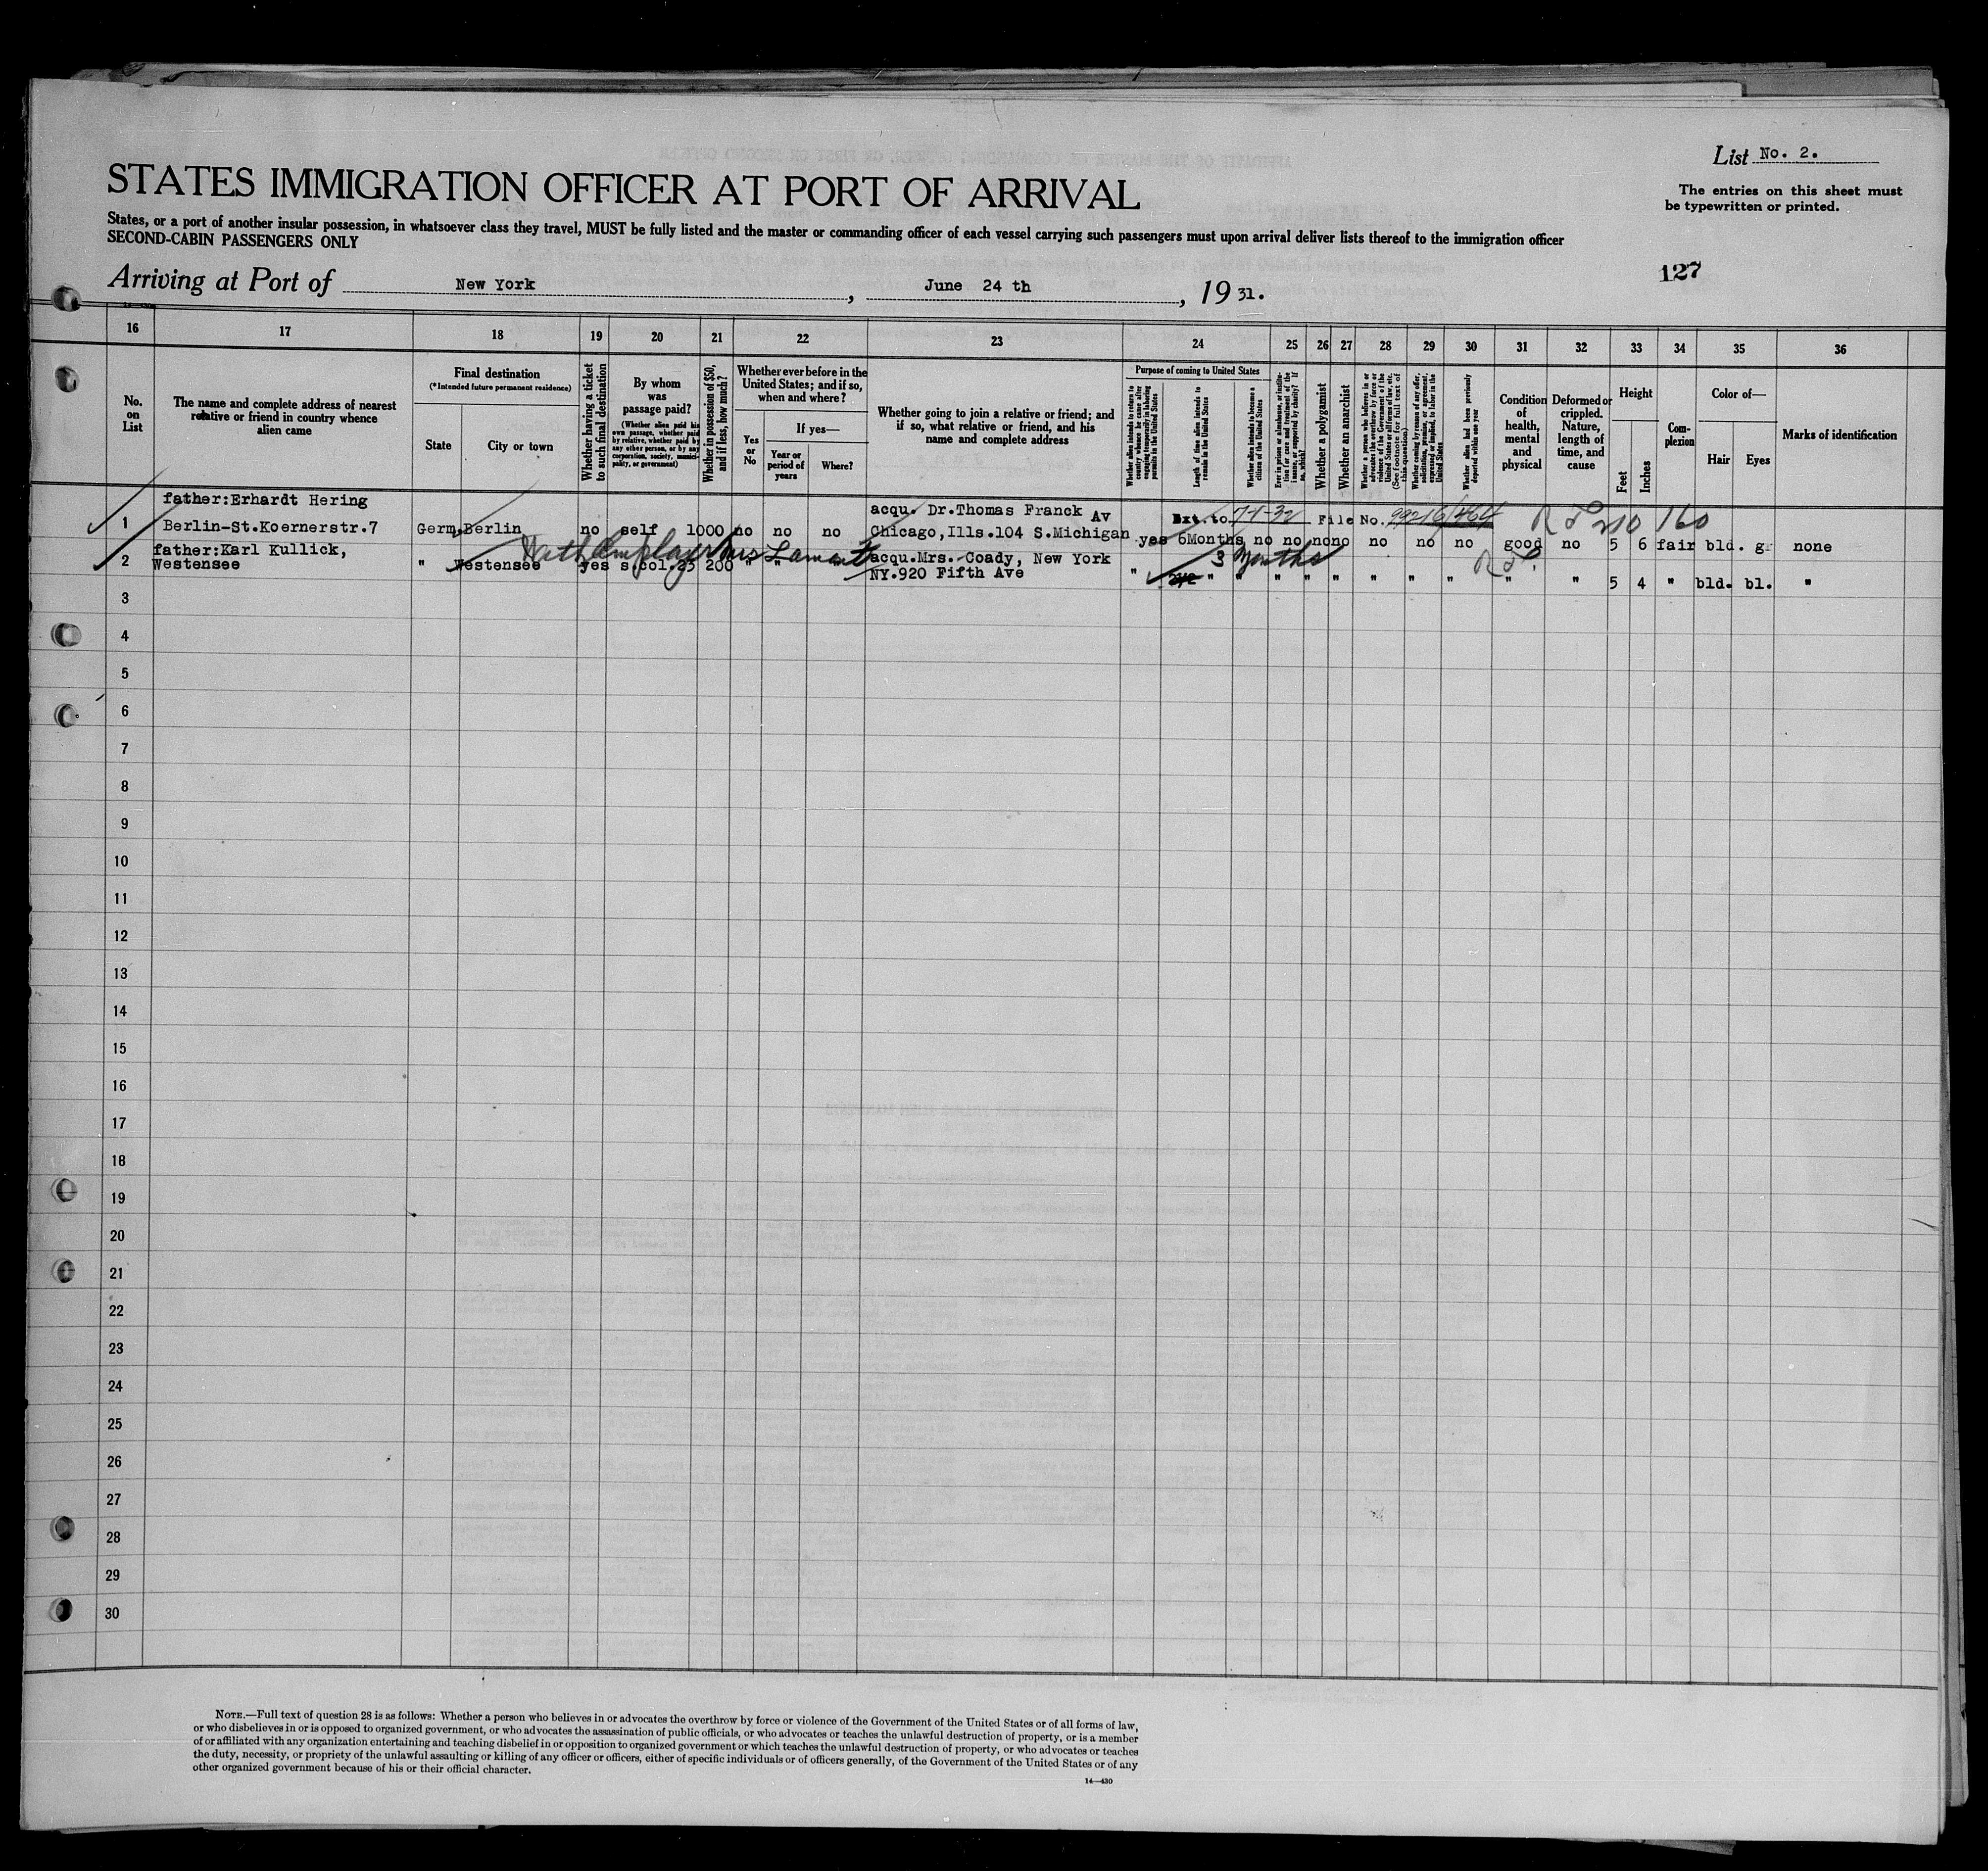 List No. 2.
STATES IMMIGRATION OFFICER AT PORT OF ARRIVAL
The entries on this sheet must
be typewritten or printed.
States, or a port of another insular possession, in whatsoever class they travel, MUST be fully listed and the master or commanding officer of each vessel carrying such passengers must upon arrival deliver lists thereof to the immigration officer
SECOND-CABIN PASSENGERS ONLY
127
Arriving at Port of New York, June 24 th, 19 31.
16 17 18 19 20 21 22 23 24 25 26 27 28 29 30 31 32 33 34 35 36
No.
on
List
The name and complete address of nearest
relative or friend in country whence
alien came
Final destination
(*Intended future permanent residence)
State
City or town
Whether having a ticket
to such final destination
By whom
was
passage paid?
(Whether alien paid his
own passage, whether paid
by relative, whether paid by
any other person, or by any
corporation, society, munici-
pality, or government)
Whether in possession of $50,
and if less, how much?
Whether ever before in the
United States; and if so,
when and where?
Yes
or
No
If yes—
Year or
period of
years
Where?
Whether going to join a relative or friend; and
if so, what relative or friend, and his
name and complete address
Purpose of coming to United States
Whether alien intends to return to
country whence he came after
engaging temporarily in laboring
pursuits in the United States
Length of time alien intends to
remain in the United States
Whether alien intends to become a
citizen of the United States
Ever in prison or almshouse, or institu-
tion for care and treatment of the
insane, or supported by charity? If
so, which?
Whether a polygamist
Whether an anarchist
Whether a person who believes in or
advocates the overthrow by force or
violence of the Government of the
United States or all forms of law, etc.
(See footnote for full text of
this question)
Whether coming by reason of any offer,
solicitation, promise, or agreement,
expressed or implied, to labor in the
United States
Whether alien had been previously
deported within one year
Condition
of
health,
mental
and
physical
Deformed or
crippled.
Nature,
length of
time, and
cause
Height
Feet
Inches
Com-
plexion
Color of—
Hair
Eyes
Marks of identification
father:Erhardt Hering acqu. Dr.Thomas Franck Av Ext. to 7-1-32 File No. 99216/464 210 160
1 Berlin-St.Koernerstr.7 Germ. Berlin no self 1000 no no no Chicago,Ills.104 S.Michigan yes 6Months no no no no no no no good no 5 6 fair bld. g. none
father:Karl Kullick, With employer Mrs Lamont acqu.Mrs. Coady, New York 3 Months
2 Westensee " Westensee yes s.col.25 200 " " " NY.920 Fifth Ave " " " " " " " " " " " 5 4 " bld. bl. "
3
4
5
6
7
8
9
10
11
12
13
14
15
16
17
18
19
20
21
22
23
24
25
26
27
28
29
30
NOTE.—Full text of question 28 is as follows: Whether a person who believes in or advocates the overthrow by force or violence of the Government of the United States or of all forms of law,
or who disbelieves in or is opposed to organized government, or who advocates the assassination of public officials, or who advocates or teaches the unlawful destruction of property, or is a member
of or affiliated with any organization entertaining and teaching disbelief in or opposition to organized government or which teaches the unlawful destruction of property, or who advocates or teaches
the duty, necessity, or propriety of the unlawful assaulting or killing of any officer or officers, either of specific individuals or of officers generally, of the Government of the United States or of any
other organized government because of his or their official character.
14—430